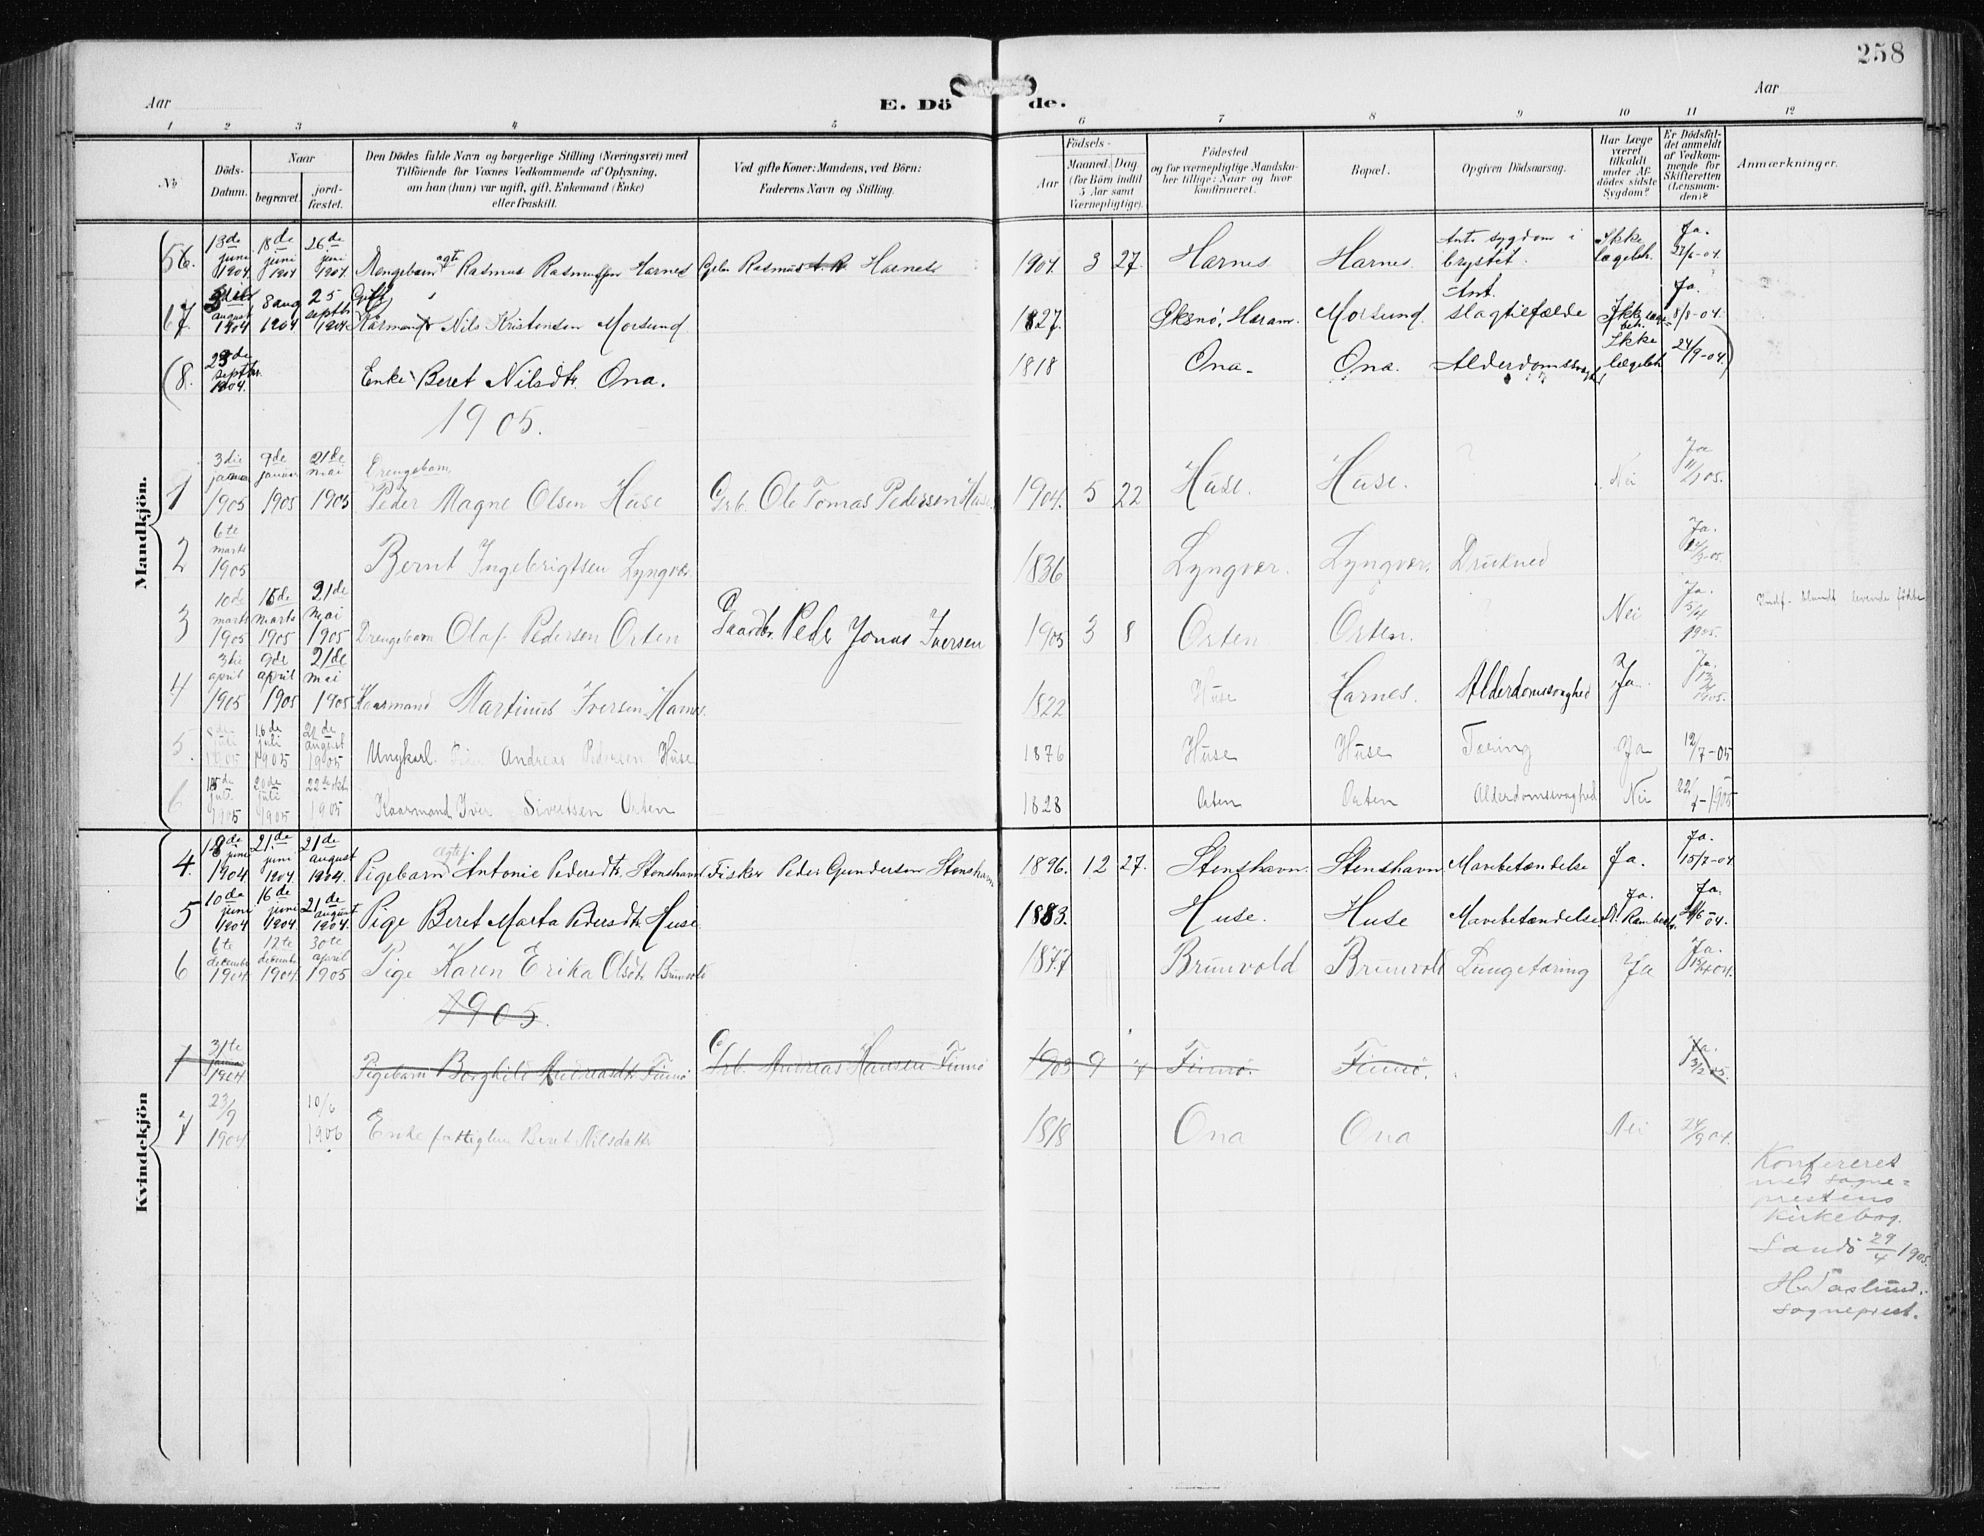 258
Aar
E. Dö de.
Aar
1 2 3 4 5 6 7 8 9 10 11 12
No
Döds-Datum.
Naar
begravet.
jord-fæstet.
Den Dödes fulde Navn og borgerlige Stilling (Næringsvei) med
Tilföiende for Voxnes Vedkommende af Oplysning,
om han (hun) var ugift, gift, Enkemand (Enke)
eller fraskilt.
Ved gifte Koner: Mandens, ved Börn:
Faderens Navn og Stilling.
Födsels-
Aar
Maaned. Dag.
(for Börn indtil
5 Aar samt
Værnepligtige).
Födested
og for værnepligtige Mandska-
ber tillige: Naar og hvor
konfirmeret.
Bopæl.
Opgiven Dödsaarsag.
Har Læge
været
tilkaldt
under Af-
dödes sidste
Sygdom?
Er Dödsfal-
det anmeldt
af Vedkom-
mende for
Skifteretten
(Lensman-
den)?
Anmærkninger.
Mandkjön.
6. 13de juni 1904 18de juni 1904 26de juni 1904 Drengebarn ægte Rasmus Rasmussen Harnes Rasmus Harnes 1904 3 27. Harnes Harnes Ant. sygdom i brystet. Ikke lægebeh. Ja. 27/6-04.
7. august 1904 8 aug 1904 25 septbr 1904. Gift Kårmand Nils Kristensen Morsund 1827. Øksnø, Haram. Morsund. Ant. slagtilfælde Ikke læge-beh. Ja. 8/8-04.
(8. 23de septbr. 1904. Enke Beret Nilsdtr. Ona. 1818 Ona. Ona. Alderdomssvagh. Ikke lægebeh. 24/9-04)
1905.
1 3die januar 1905 9de januar 1905 21de mai 1905 Drengebarn Peder Magne Olsen Huse Grb. Ole Tomas Pedersen Huse. 1904. 5 22 Huse. Huse. ? Nei Ja 11/1 05.
2 6te marts 1905 Bernt Ingebrigtsen Lyngvær. 1836 Lyngvær. Lyngvær. Druknet Ja.
3 10de marts 1905 16de marts 1905 21de mai 1905 Drengebarn Olaf Pedersen Orten Gaardbr. Peder Jonas Iversen 1905 3 8 Orten Orten. Nei Ja. 5/4 1905. Indf. blandt levende fødte
4 3die april 1905 9de april 1905 21de mai 1905 Kaarmand Martinus Iversen Harnes. 1822 Huse Harnes. Alderdomssvaghed Ja. Ja. 1905.
5. 8de juli 1905 16de juli 1905 august 1905 Ungkarl Andreas Pedersen Huse 1876 Huse Huse Tæring Ja 12/7-05
6 15de juli 1905 20de juli 1905 22de okt. 1905 Kaarmand Iver Sivertsen Orten 1828 Orten Orten Alderdomssvaghed Nei 22/7-1905
Kvindekjön
4. 18de juni 1904 21de juni 1904 21de august 1904. Pigebarn ægtef. Antonie Pedersdtr. Stenshavn Fisker Peder Gunderson Stenshavn 1896. 12 27. Stenshavn. Stenshavn. Mavebetændelse Ja. Ja. 15/7-04
5 10de juni 1904 16de juni 1904 21de august 1904 Pige Beret Marta Pedersdtr. Huse. 1883. Huse. Huse Mavebetændelse. Ja. Ja.
6 6te december 1904. 12te december 1904. 30te april 1905 Pige Karen Erika Olsdtr. Brunvold 1877 Brunvold Brunvold Lungetæring Ja Ja.
1905.
1 31te januar 1904 Pigebarn Borghild Andreasdtr. Finnø Grb. Andreas Hansen Finnø 1903 9 4 Finnø. Finnø. Ja. 3/2 05.
7 23/9 1904 10/6 1906 Enke fattiglem Beret Nilsdatter 1818 Ona Ona Nei 24/9 04.
Konfereret
med sogne=
prestens
kirkebog.
Sandö 29/4 1905.
sogneprest.